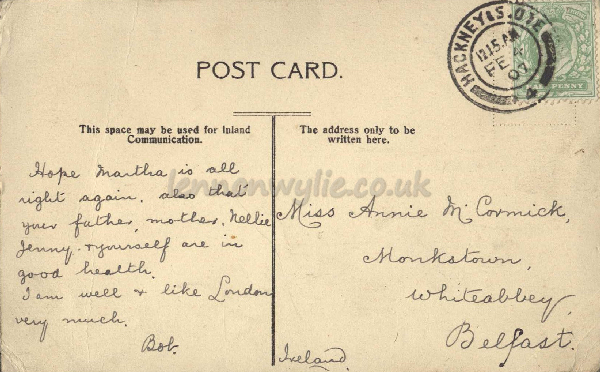 HACKNEY S.O. N.E
12.15.AM
FE 4
07
PENNY
POST CARD.
This space may be used for Inland
Communication.
The address only to be
written here.
lennonwylie.co.uk
Hope Martha is all
right again. also that
your father, mother, Nellie
Jenny & yourself are in
good health.
I am well & like London
very much.
Bob.
Miss Annie McCormick,
Monkstown,
Whiteabbey,
Belfast.
Ireland